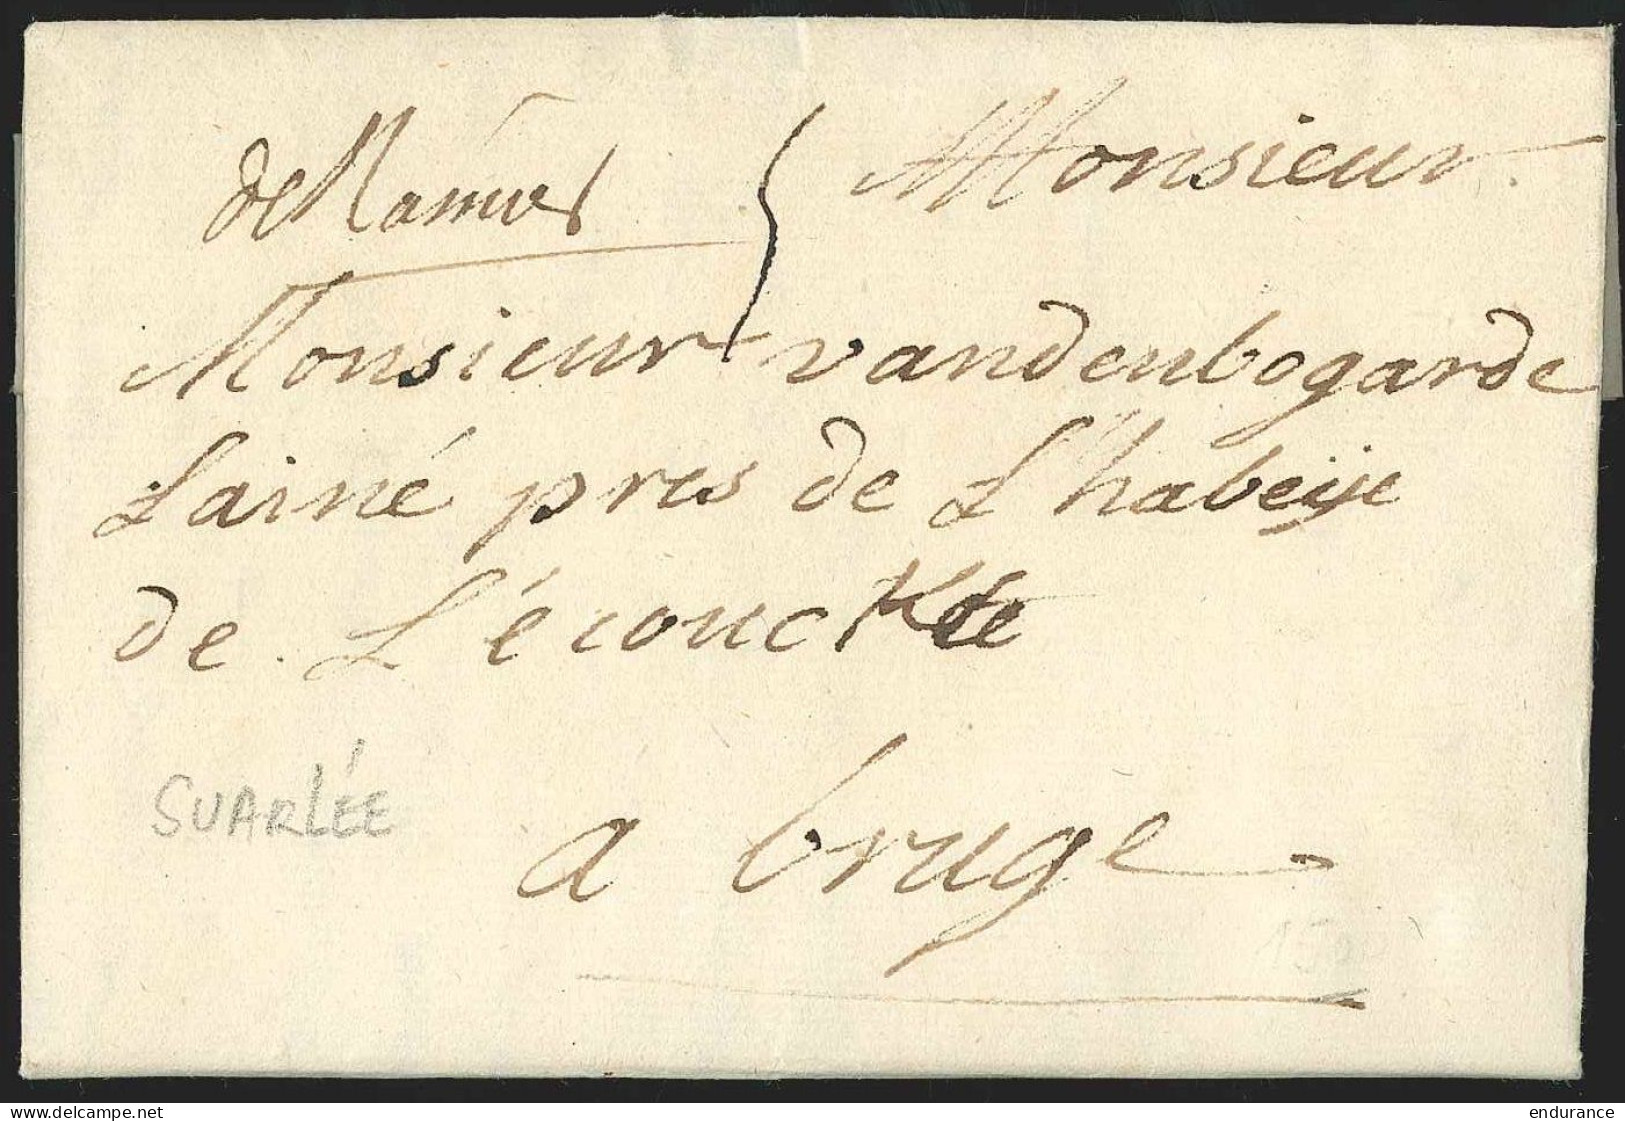 de Namur
Monsieur
Monsieur vandenbogarde
Lainé pres de L'habeÿe
de L'éconckte
SUARLÉE
a bruge
150
www.delcampe.net
endurance